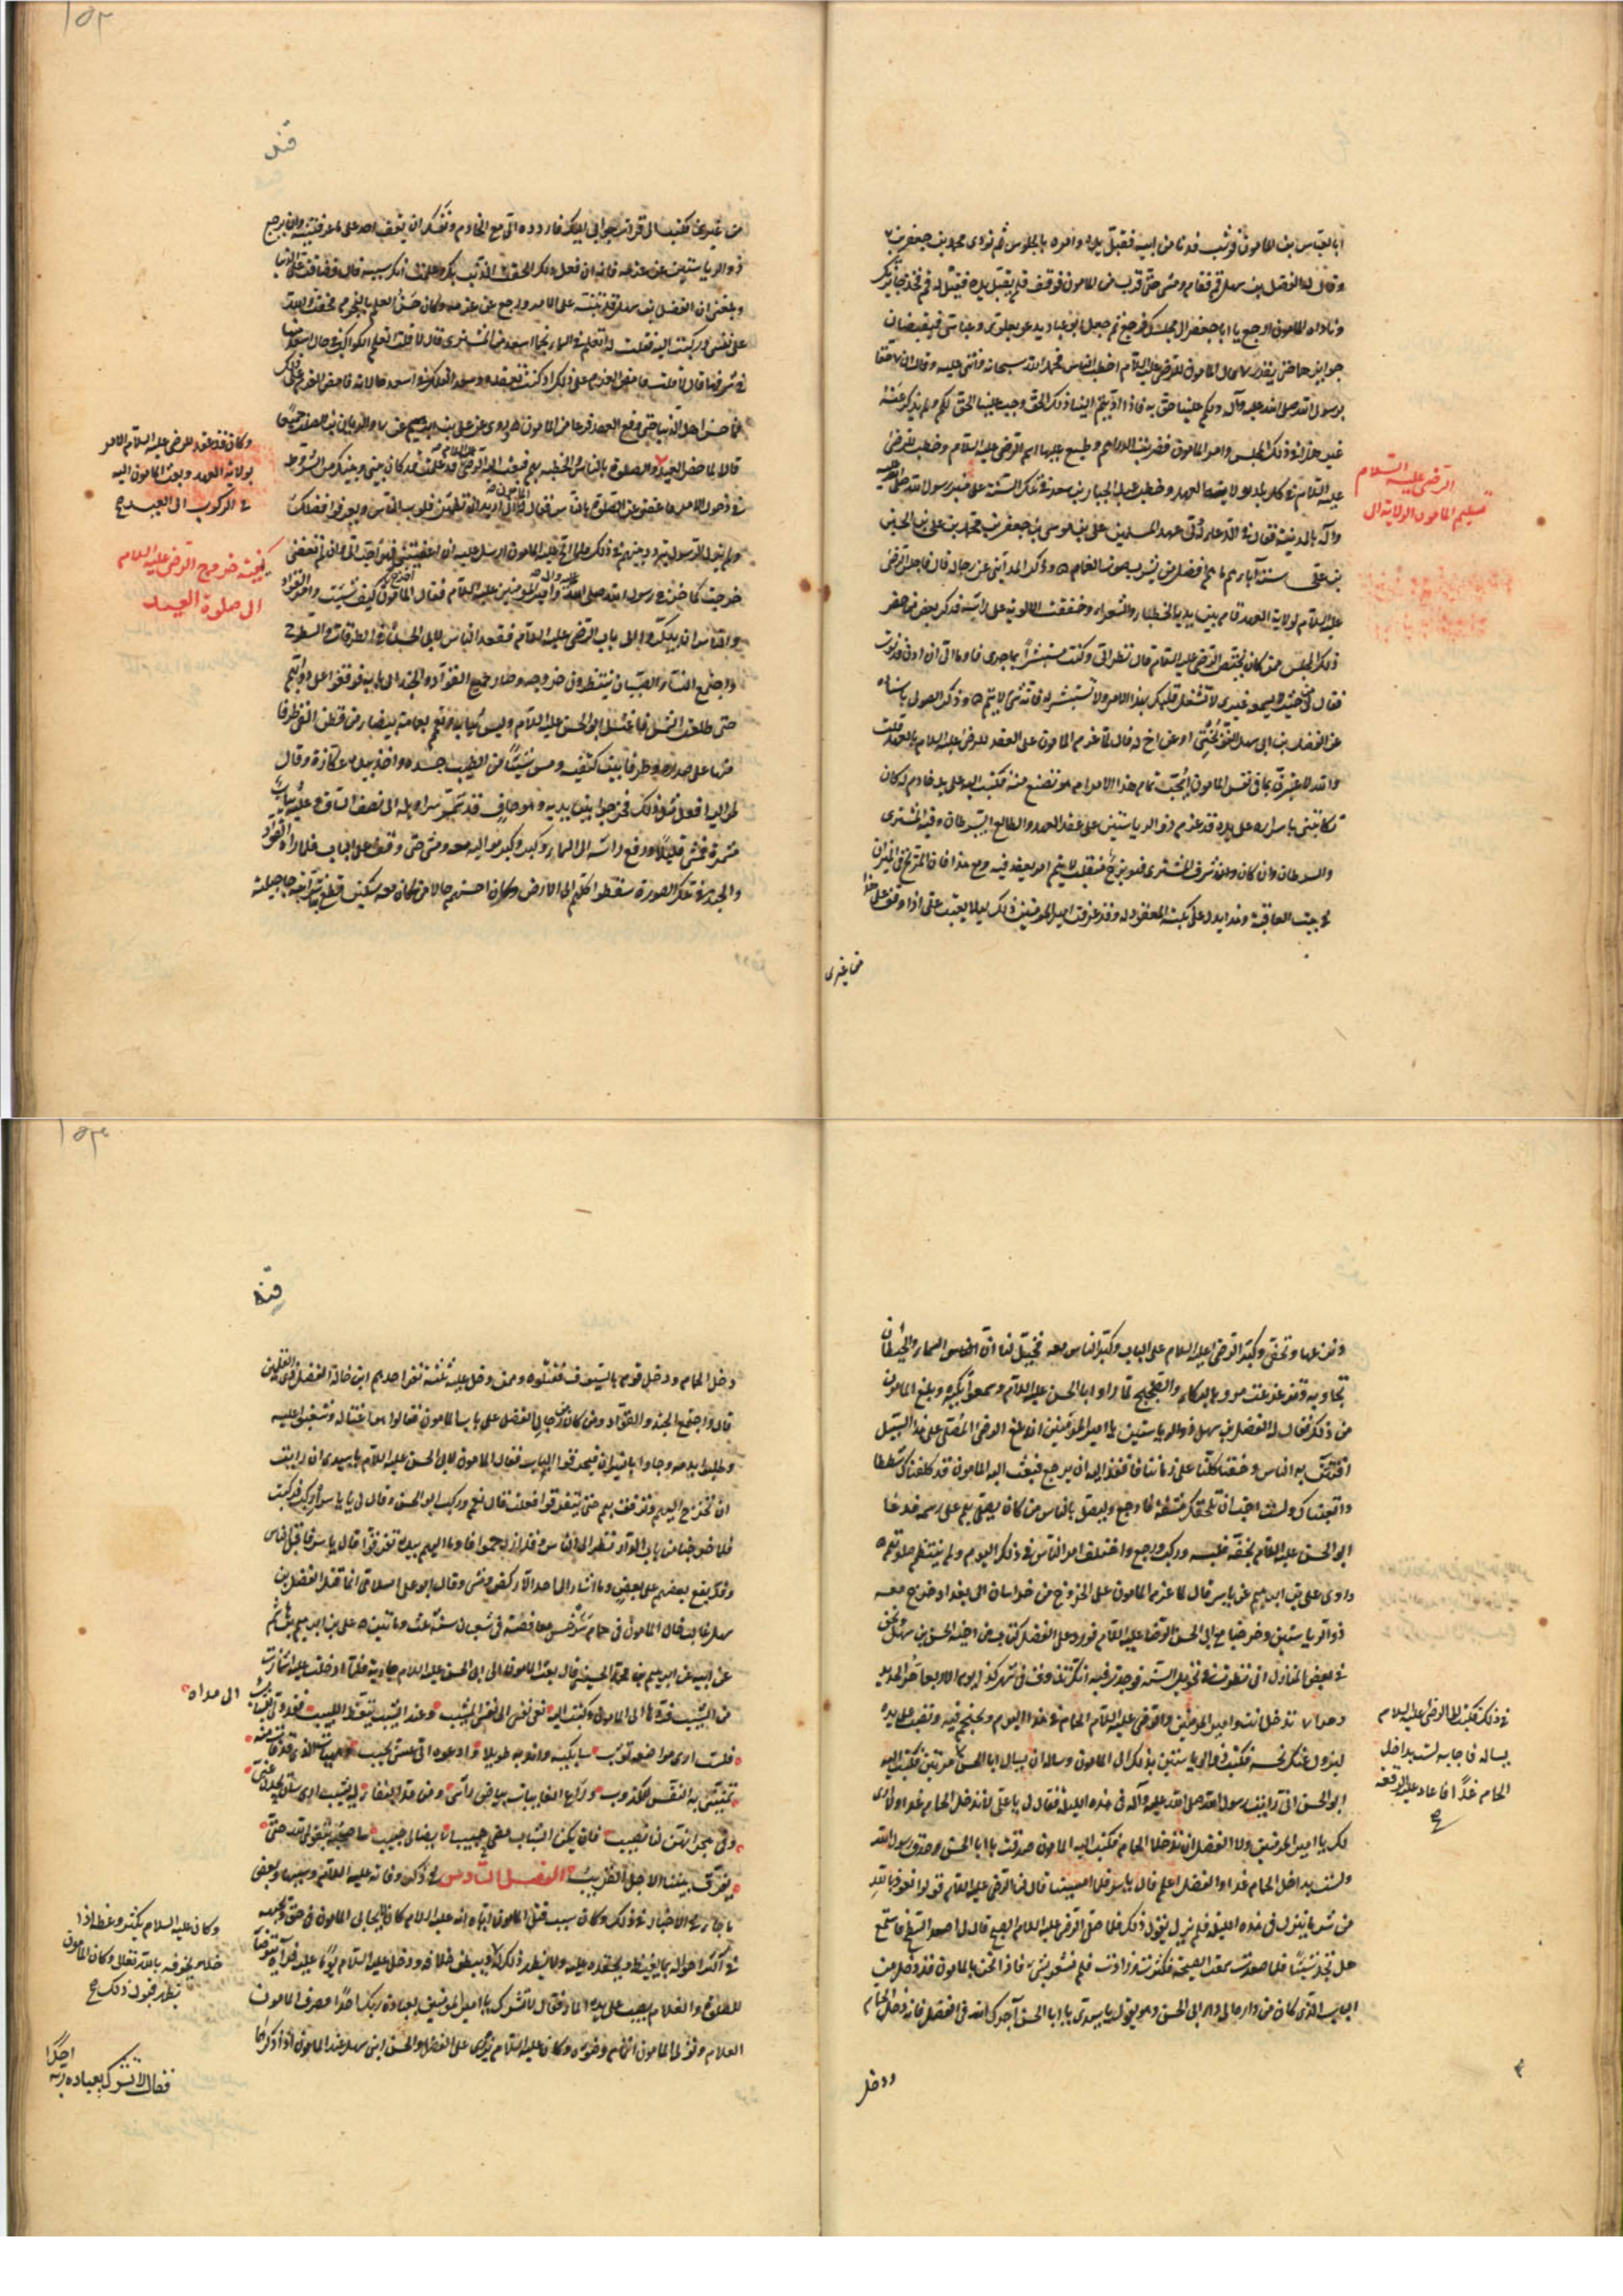 ابا العباس بن المامون فوثب فدنا من ابيه فقبل يده وامره بالجلوس ثم نودى محمد بن جعفر بن
وقال له الفضل بن سهل قم فقام ومشى حتى قرب من المامون فوقف فلم يقبل يده فقيل له قم فخذ جائزتك
وناداه المامون ارجع يا ابا جعفر الى مجلسك فرجع ثم جعل ابو عباد يدعو بعلوى وعباسى فيقبضان
جوايزهما حتى نفدت الاموال ثم قال المامون للرضى عليه السلام اخطب الناس فحمد الله سبحانه واثنى عليه وقال ان لنا حقا
برسول الله صلى الله عليه وآله ولكم علينا حق به فاذا اديتم الينا ذلك الحق وجب علينا الحق لكم ولم يذكر عنه
غير هذا فى ذلك المجلس وامر المامون فضربت الدراهم وطبع عليها اسم الرضى عليه السلام وخطب للرضى
عليه السلام فى كل بلد بولاية العهد وخطب عبد الجبار بن سعد فى تلك السنة على منبر رسول الله صلى الله عليه
وآله بالمدينة فقال فى الدعاء له ولى عهد المسلمين على بن موسى بن جعفر بن محمد بن على بن الحسين
بن على ستة آباؤهم ما هم افضل من يشرب صوب الغمام وذكر المداينى عن رجاله قال لما جلس الرضى
عليه السلام لولاية العهد قام بين يديه الخطباء والشعراء وخفقت الالوية على راسه فذكر بعض من حضر
ذلك المجلس ممن كان يختص بالرضى عليه السلام قال نظر الى وكنت مستبشرا بما جرى فاومأ الى ان ادن فدنوت
فقال من حيث لا يسمعه غيرى لا تشغل قلبك بهذا الامر ولا تستبشر له فانه شىء لا يتم وذكر الصولى باسناده
عن الفضل بن ابى سهل النوبختى او عن اخ له قال لما عزم المامون على العقد للرضى عليه السلام بالعهد قلت
والله لاعتبرن بما فى نفس المامون ايحب تمام هذا الامر ام هو تصنع منه فكتبت اليه على يد خادم له كان
يكاتبنى باسراره على يده قد عزم ذو الرياستين على عقد العهد والطالع السرطان وفيه المشترى
والسرطان وان كان شرف المشترى فهو برج منقلب لا يتم امر يعقد فيه ومع هذا فان المريخ فى الميزان
فى بيت العاقبة وهذا يدل على نكبة المعقود له وقد عرفت امير المومنين ذلك لئلا يعتب على اذا وقف على هذا
من غيرى
الرضى عليه السلام
تسليم المامون الولاية الى
١٥٢
من غيرى فكتب الى اذا قرات جوابى اليك فاردده الى مع الخادم ونفسك ان يقف احد على ما عرفتنيه وان يرجع
ذو الرياستين عن عزمه فانه ان فعل ذلك الحقت الذنب بك وعلمت انك سببه قال فضاقت على الدنيا
وبلغنى ان الفضل بن سهل قد تنبه على الامر ورجع عن عزمه وكان حسن العلم بالنجوم فخفت والله
على نفسى وركبت اليه فقلت له اتعلم فى السماء نجما اسعد من المشترى قال لا قلت افتعلم فى الكواكب فى حال اسعد منها
فى شرفها قال لا قلت فامض العزم على ذلك اذ كنت تعقده وسعد الفلك فى اسعد حالاته فامضى العزم على ذلك
فما حسبت اهل الدنيا حتى وقع العهد فزعا من المامون وروى عن على بن ابرهيم عن ياسر والريان بن الصلت جميعا
قالا لما حضر العيد والصلوة بالناس والخطبة بهم فبعث اليه الرضى عليه السلام قد علمت ما قد كان بينى وبينك من الشروط
فى دخول الامر فاعفنى عن الصلوة بالناس فقال له المامون انما اريد ان تطمئن قلوب الناس ويعرفوا فضلك
ولم تزل الرسل تردد بينهم فى ذلك فلما الح عليه المامون ارسل عليه ان اعفيتنى فهو احب الى وان لم تعفنى
خرجت كما خرج رسول الله صلى الله عليه وآله وامير المومنين عليه السلام فقال المامون اخرج كيف شئت وامر القواد
والناس ان يبكروا الى باب الرضى عليه السلام فقعد الناس لابى الحسن فى الطرقات والسطوح
واجتمع النساء والصبيان ينتظرون خروجه وصار جميع القواد والجند الى بابه فوقفوا على دوابهم
حتى طلعت الشمس فاغتسل ابو الحسن عليه السلام ولبس ثيابه وتعمم بعمامة بيضاء من قطن القى طرفا
منها على صدره وطرفا بين كتفيه ومس شيئا من الطيب جسده واخذ بيده عكازة وقال
لمواليه افعلوا مثل ذلك فخرجوا بين يديه وهو حاف قد شمر سراويله الى نصف الساق وعليه ثياب
مشمرة فمشى قليلا ورفع راسه الى السماء وكبر وكبر مواليه معه ومشى حتى وقف على الباب فلما راه القواد
والجند فى تلك الصورة سقطوا كلهم الى الارض وكان احسنهم حالا من كان معه سكين قطع بها شرابة جاجيلته
وكان قد عقد للرضى عليه السلام الامر
بولاية العهد وبعث المامون اليه
فى الركوب الى العيد ح
كيفية خروج الرضى عليه السلام
الى صلوة العيد
ونزعها وتحفى وكبر الرضى عليه السلام على الباب وكبر الناس معه فخيل لنا ان السماء والحيطان
تجاوبه وتزعزعت مرو بالبكاء والضجيج لما راوا ابا الحسن عليه السلام وسمعوا تكبيره وبلغ المامون
من ذلك فقال له الفضل بن سهل ذو الرياستين يا امير المومنين ان بلغ الرضى المصلى على هذا السبيل
افتتن به الناس وخفنا كلنا على دمائنا فانفذ اليه ان يرجع فبعث اليه المامون قد كلفناك شططا
واتعبناك ولست احب ان تلحقك مشقة فارجع وليصل بالناس من كان يصلى بهم على رسمه فدعا
ابو الحسن عليه السلام بخفه فلبسه وركب ورجع واختلف امر الناس فى ذلك اليوم ولم ينتظم صلوتهم
وروى على بن ابرهيم عن ياسر قال لما عزم المامون على الخروج من خراسان الى بغداد خرج معه
ذو الرياستين وخرجنا مع ابى الحسن الرضا عليه السلام فورد على الفضل كتاب من اخيه الحسن بن سهل ونحن
فى بعض المنازل انى نظرت فى تحويل السنة فوجدت فيه انك تذوق فى شهر كذا يوم الاربعا حر الحديد
وحر النار تدخل انت وامير المومنين والرضى عليه السلام الحمام فى هذا اليوم وتحتجم فيه وتصب على يده
ليزول عنك نحسه فكتب ذو الرياستين بذلك الى المامون وساله ان يسال ابا الحسن مرتين فكتب اليه
ابو الحسن انى رايت رسول الله صلى الله عليه وآله فى هذه الليلة فقال لى يا على لا تدخل الحمام غدا ولا ارى
لك يا امير المومنين ولا الفضل ان تدخلا الحمام فكتب اليه المامون صدقت يا ابا الحسن وصدق رسول الله
ولست بداخل الحمام غدا والفضل اعلم قال ياسر فلما امسينا قال لنا الرضى عليه السلام قولوا نعوذ بالله
من شر ما ينزل فى هذه الليلة فلم نزل نقول ذلك فلما صلى الرضى عليه السلام الصبح قال لى اصعد السطح فاستمع
هل تجد شيئا فلما صعدت سمعت الصيحة فكثرت وزادت فلم نشعر بشىء فاذا نحن بالمامون قد دخل من
الباب الذى كان من داره الى دار ابى الحسن وهو يقول يا سيدى يا ابا الحسن آجرك الله فى الفضل فانه دخل الحمام
ودخل
فى ذلك فكتب الى الرضى عليه السلام
يساله فاجابه لست بداخل
الحمام غدا فاعاد عليه الرقعة
ح
١٥٣
دخل الحمام ودخل قوم بالسيوف فقتلوه وممن دخل عليه ثلثة نفر احدهم ابن خالة الفضل ذى القلمين
قال واجتمع الجند والقواد ومن كان من رجال الفضل على باب المامون فقالوا هو اغتاله وشغبوا عليه
وطلبوا بدمه وجاءوا بالنيران ليحرقوا الباب فقال المامون لابى الحسن عليه السلام يا سيدى ان رايت
ان تخرج اليهم وترفق بهم حتى يتفرقوا فعلت قال نعم وركب ابو الحسن وقال لى يا ياسر اركب فركبت
فلما خرجنا من باب الدار نظر الى الناس وقد ازدحموا فاومأ اليهم بيده تفرقوا قال ياسر فاقبل الناس
والله يقع بعضهم على بعض وما اشار الى احد الا ركض ومشى وقال ابو على السلامى انما قتل الفضل بن
سهل غالب خال المامون فى حمام سرخس مغافصة فى شعبان سنة ثلث وماتين على بن ابرهيم بن هاشم
عن ابيه عن ابرهيم بن محمد الحسنى قال بعث المامون الى ابى الحسن عليه السلام جارية فلما ادخلت عليه اشمازت
من الشيب فردها الى المامون وكتب اليه نعى نفسى الى نفسى المشيب وعند الشيب يتعظ اللبيب فقد ولى الشباب الى مداه
فلست ارى مواضعه تؤب سابكيه واندبه طويلا وادعوه الى عسى يجيب وهيهات الذى قد فات منه
تمنينى به النفس الكذوب وراع الغانيات بياض راسى ومن مد البقاء له يشيب ارى البيض الحسان يحدن عنى
وفى هجرانهن لنا نصيب فان يكن الشباب مضى حبيبا فان الشيب ايضا لى حبيب ساصحبه بتقوى الله حتى
يفرق بيننا الاجل القريب الفصل السادس فى ذكر وفاته عليه السلام وسببها وبعض
ما جاء من الاخبار فى ذلك وكان سبب قتل المامون اياه انه عليه السلام كان لا يحابى المامون فى حق ويجبهه
فى اكثر احواله بما يغيظه ويحقده عليه ولا يظهر ذلك له ويبطن خلافه ودخل عليه السلام يوما عليه فراه يتوضأ
للصلوة والغلام يصب على يده الماء فقال لا تشرك يا امير المومنين بعبادة ربك احدا فصرف المامون
الغلام وتولى المامون اتمام وضوءه وكان عليه السلام يزرى على الفضل والحسن ابنى سهل عند المامون اذا ذكرهما
وكان عليه السلام يكثر وعظه اذا
خلا به ويخوفه بالله تعالى وكان المامون
يظهر قبول ذلك ح
فقال لا تشرك بعباده ربه
احدا